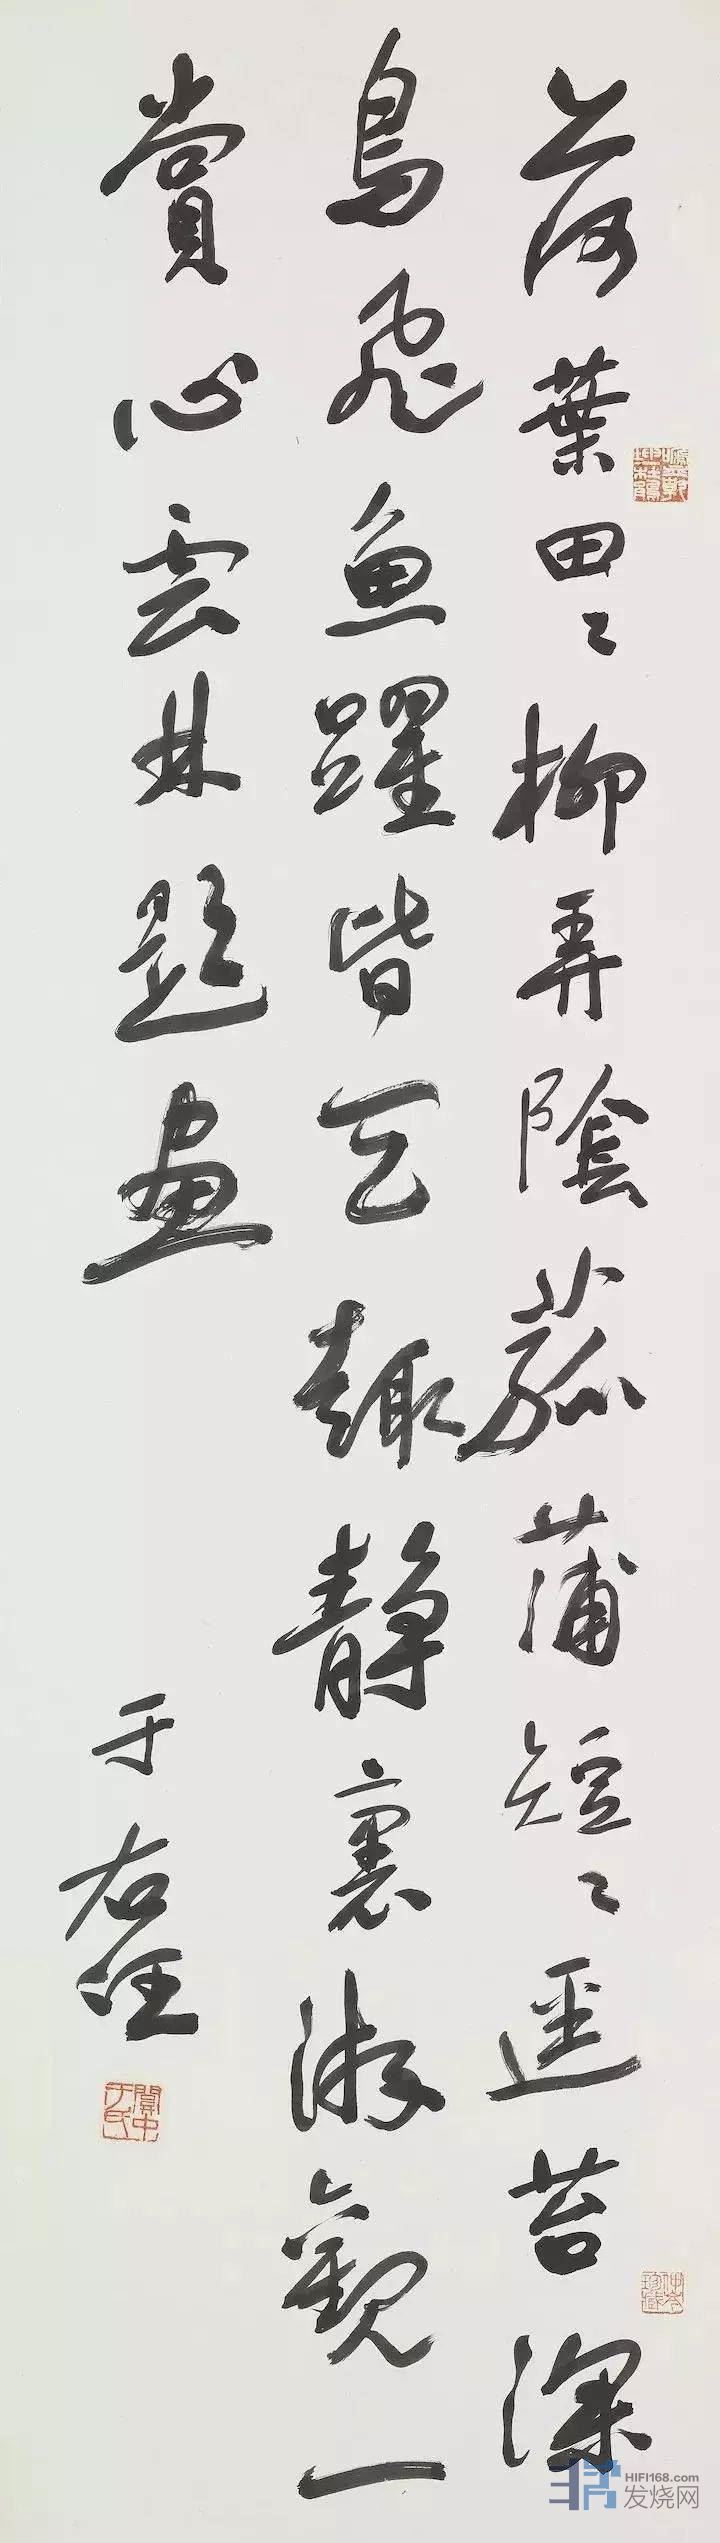 荷葉田〻柳弄陰菰蒲短〻逕苔深
鳥飛魚躍皆天趣靜裏游觀一
賞心雲林題畫
于右任
關中于氏
HIFI168.com
发烧网